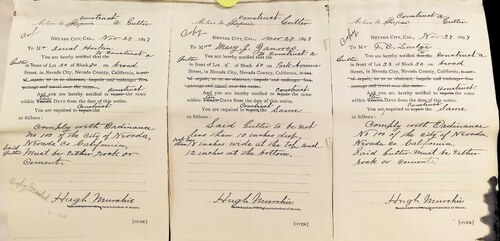 construct
Notice to Repair a Gutter
Copy
NEVADA CITY, CAL., Nov 27 189
To Mr.
You are hereby notified that the
Gutter
in front of Lot 20 Block 20 on Broad
Street, in Nevada City, Nevada County, California, is out
of repair, or so to obstruct, impede and endanger the
passage and travel over the same.
And you are required to repair the same
construct
within DAYS from the date of this notice.
You are required to repair the
as follows:
Comply with Ordinance
No 100 of the City of Nevada,
Nevada Co California.
Said Gutter Must be either rock or
Cement.
Copy Mailed
Hugh Murchie
[OVER]
construct
Notice to Repair a Gutter
Copy
NEVADA CITY, CAL., Nov 27 189
To Mrs Mary J.
You are hereby notified that the
Gutter
in front of Lot 5 Block 20 on Park Avenue
Street, in Nevada City, Nevada County, California, is out
of repair, or so to obstruct, impede and endanger the
passage and travel over the same.
And you are required to repair the same
construct
within DAYS from the date of this notice.
You are required to repair the same
as follows:
Said Gutter to be not
less than 10 inches deep
18 inches wide at the top and
12 inches at the bottom,
Hugh Murchie
[OVER]
construct
Notice to Repair a Gutter
Copy
NEVADA CITY, CAL., Nov 27 189
To Mr.
You are hereby notified that the construct a
Gutter
in front of Lot 23 Block 20 on Broad
Street, in Nevada City, Nevada County, California, is out
of repair, or so to obstruct, impede and endanger the
passage and travel over the same.
And you are required to repair the same
construct
within DAYS from the date of this notice.
You are required to repair the same
as follows:
Comply with Ordinance
No 100 of the city of Nevada,
Nevada Co California,
Said Gutter Must be either
rock or cement.
Hugh Murchie
[OVER]